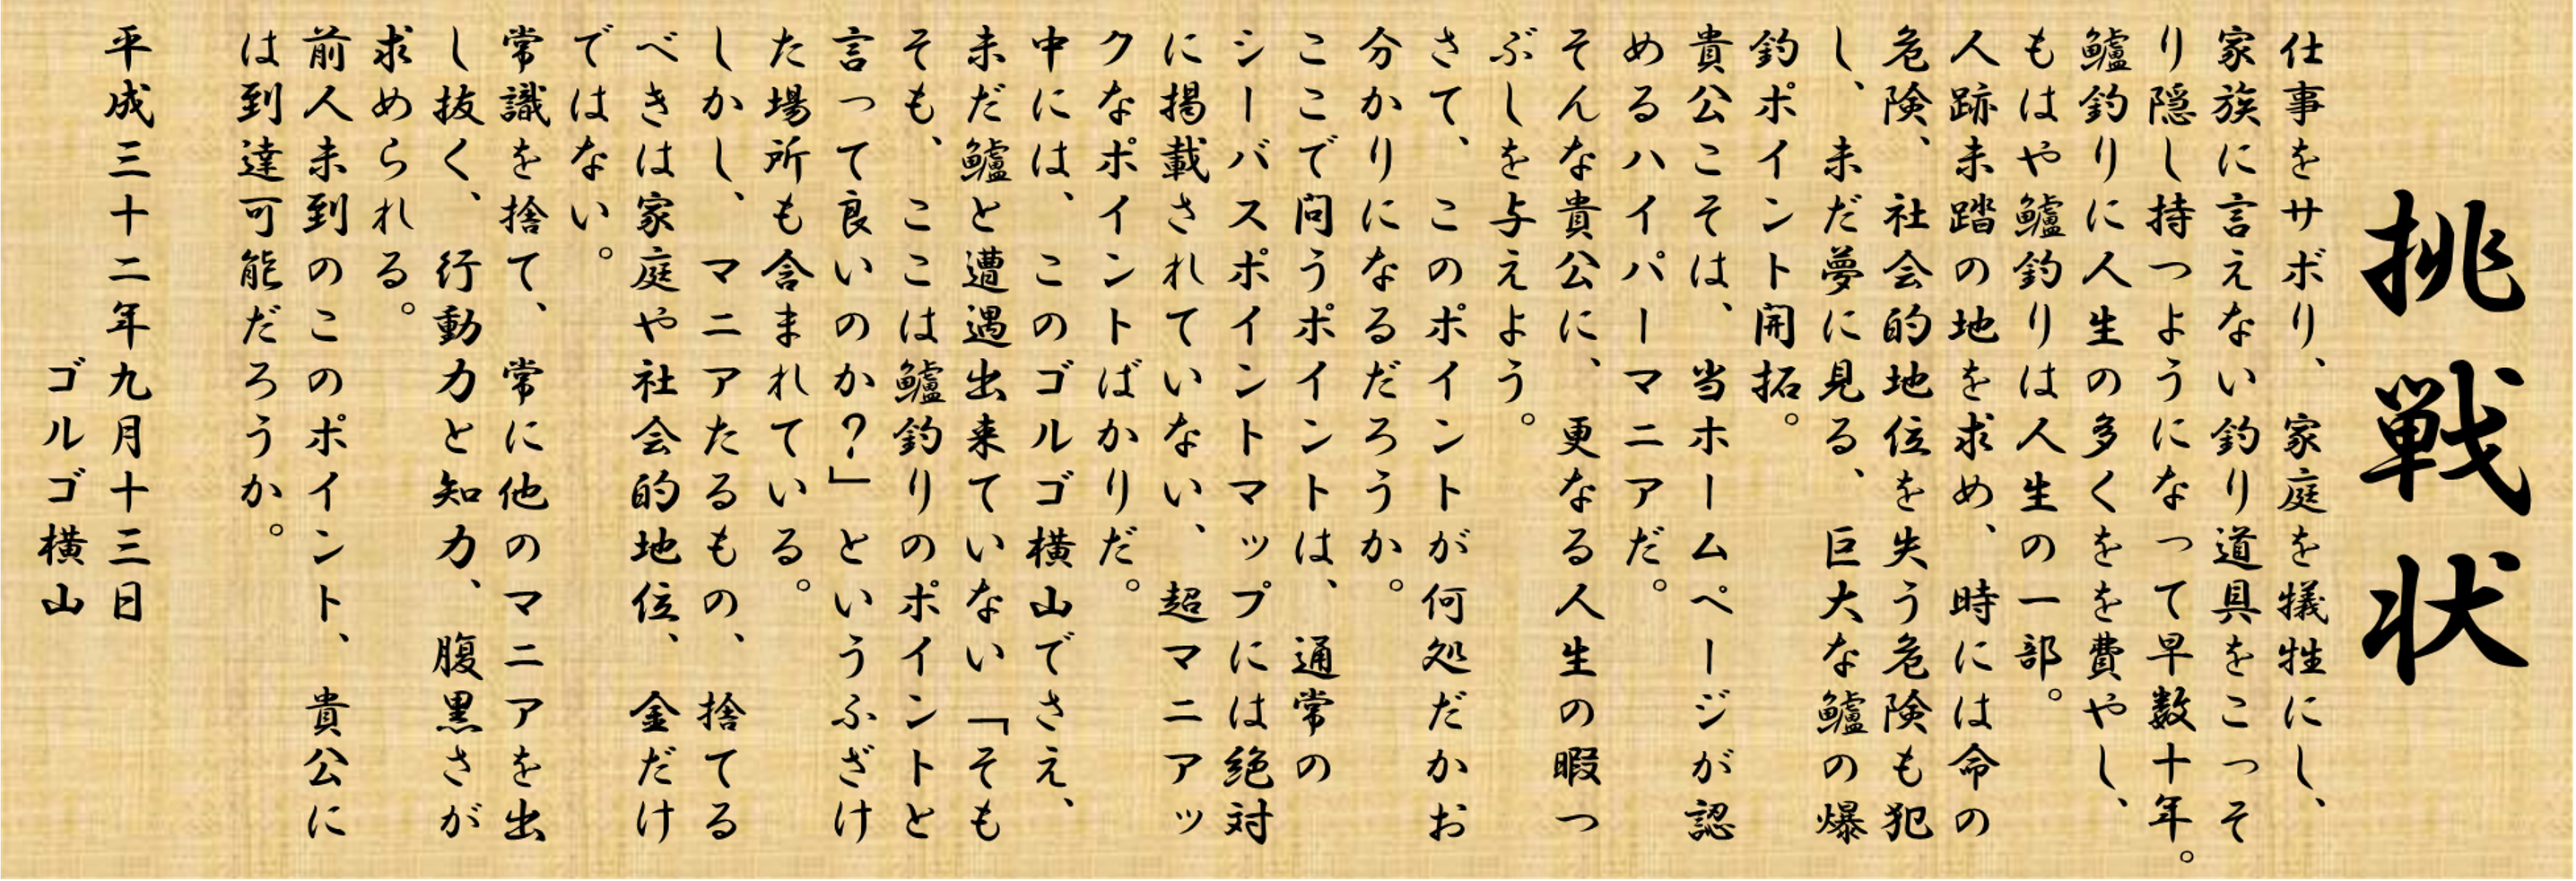 挑戦状
仕事をサボり、家庭を犠牲にし、
家族に言えない釣り道具をこっそ
り隠し持つようになって早数十年。
鱸釣りに人生の多くをを費やし、
もはや鱸釣りは人生の一部。
人跡未踏の地を求め、時には命の
危険、社会的地位を失う危険も犯
し、未だ夢に見る、巨大な鱸の爆
釣ポイント開拓。
貴公こそは、当ホームページが認
めるハイパーマニアだ。
そんな貴公に、更なる人生の暇つ
ぶしを与えよう。
さて、このポイントが何処だかお
分かりになるだろうか。
ここで問うポイントは、通常の
シーバスポイントマップには絶対
に掲載されていない、超マニアッ
クなポイントばかりだ。
中には、このゴルゴ横山でさえ、
未だ鱸と遭遇出来ていない「そも
そも、ここは鱸釣りのポイントと
言って良いのか？」というふざけ
た場所も含まれている。
しかし、マニアたるもの、捨てる
べきは家庭や社会的地位、金だけ
ではない。
常識を捨て、常に他のマニアを出
し抜く、行動力と知力、腹黒さが
求められる。
前人未到のこのポイント、貴公に
は到達可能だろうか。
平成三十二年九月十三日
ゴルゴ横山